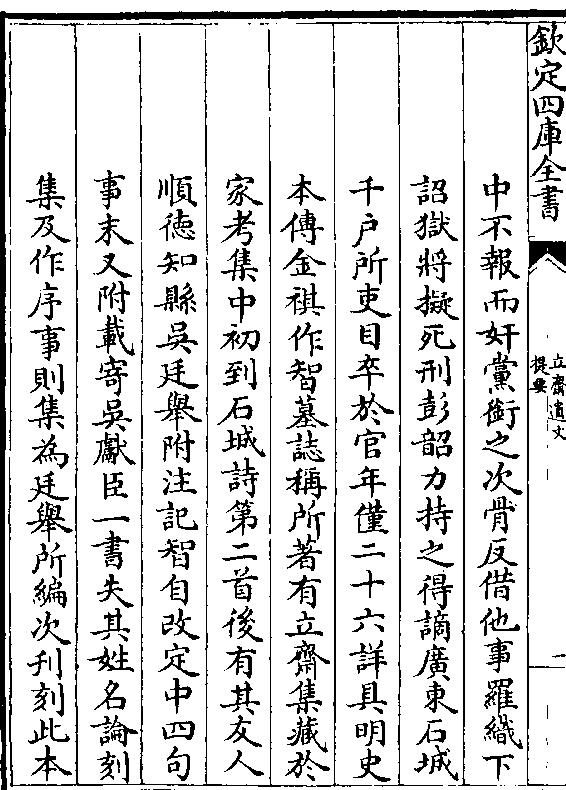 欽定四庫全書
立齋遺文
提要
一
中不報而奸黨銜之次骨反借他事羅織下
詔獄將擬死刑彭韶力持之得謫廣東石城
千户所吏目卒於官年僅二十六詳具明史
本傳金祺作智墓誌稱所著有立齋集藏於
家考集中初到石城詩第二首後有其友人
順徳知縣吳廷舉附注記智自改定中四句
事末又附載寄吳獻臣一書失其姓名論刻
集及作序事則集為廷舉所編次刋刻此本